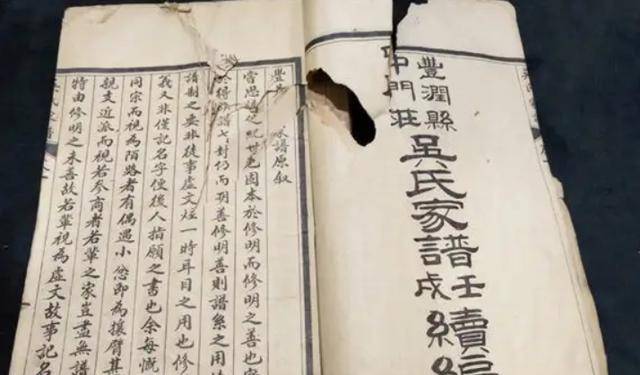 豐潤縣
中門莊
吳氏家譜
壬戌
續編
豐 譜原叙
嘗思譜之紀世也固本於修明而修明之善也
譜 仍而 善修明善則譜系之用
譜制之要非徒事虛文炫一時耳目之用也修
義又非僅記名字便後人指願之書也余每慨
同宗而視為陌路者有偶遇小忿即為攘臂其
親支近派而視若參商者若輩之家豈盡無譜
特由修明之未善故若輩視為虛文故事記名